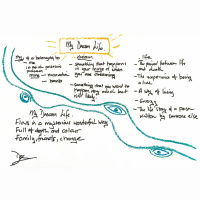 My Dream Life.
My:
of or belonging to
- me
- mine
Dream
- something that happens
in your sense of when
you are dreaming
- something that you want to
happen very much but
not likely
Life
- The period between life
and death
- The experience of being
alive
- A way of living
- Energy
- The life story of a person
written by someone else
My Dream Life.
Flows in a mysterious wonderful ways
Full of depth and colour
Family, friends, change